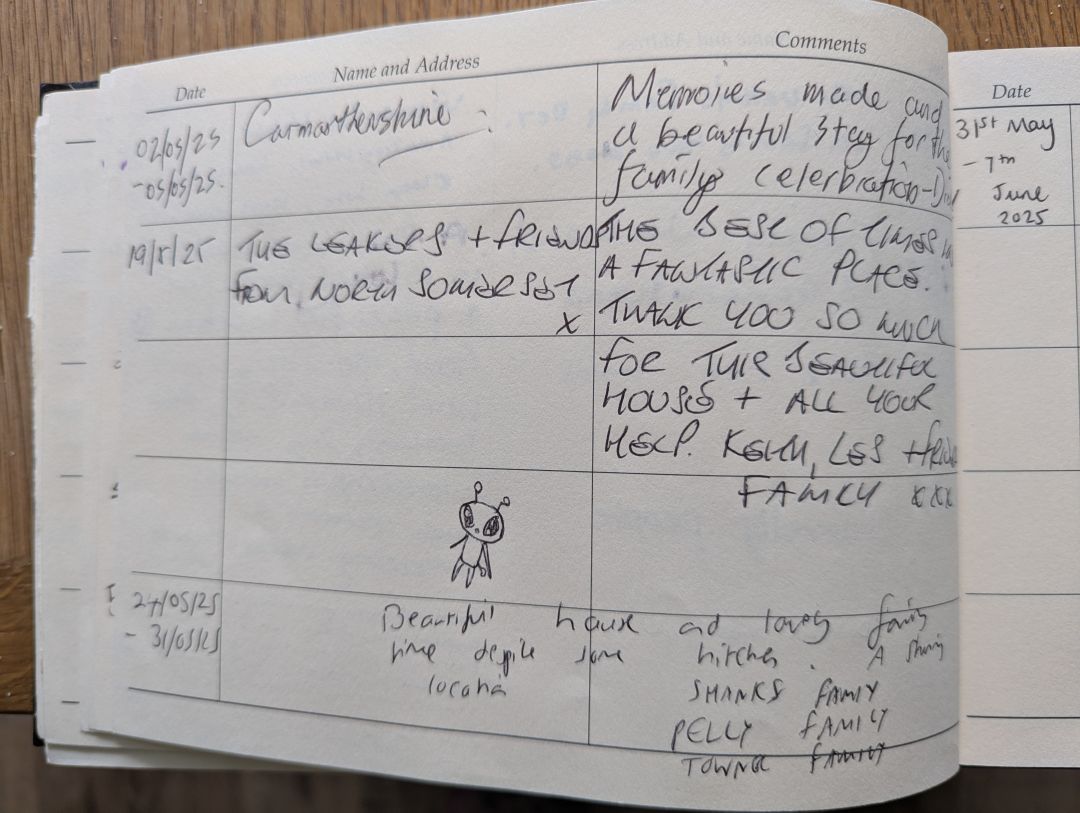 Date
Name and Address
Comments
02/05/25
-05/05/25.
Carmarthenshire
Memories made and
a beautiful stay for the
family celerbration-
19/5/25
THE LEAKERS + FRIENDS
from NORTH SOMERSET
X
THE BEST OF times in
A FANTASTIC PLACE.
THANK YOU SO MUCH
FOR THIS BEAUTIFUL
HOUSE + ALL YOUR
HELP. KELLY, LES +
FAMILY xxx
24/05/25
- 31/05/25
Beautiful house and lovely family
time despite some hitches. A
location
SHANKS FAMIY
PELLY FAMILY
FAMILY
Date
31st May
- 7th
June
2025